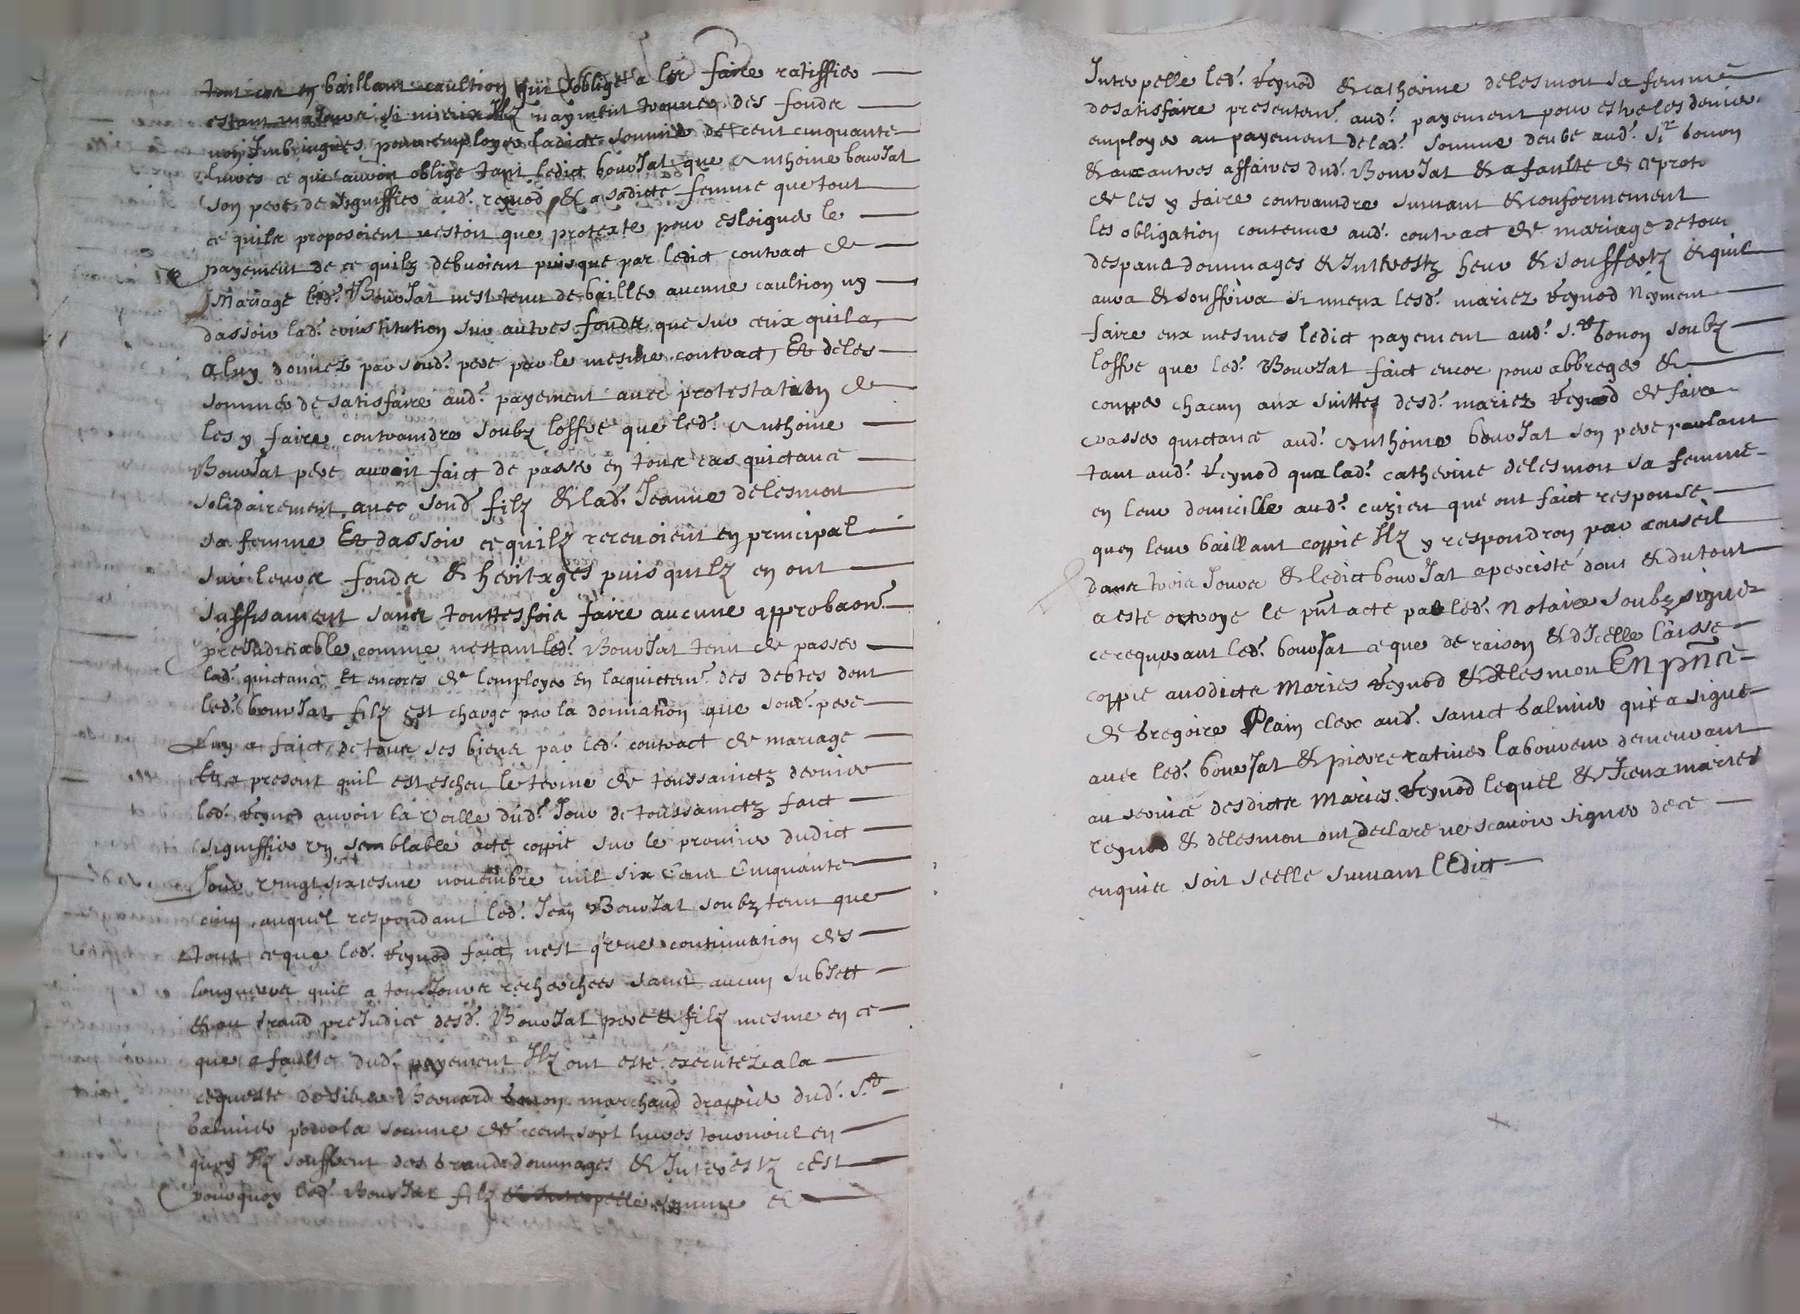 tout cas en baillant caultion qui sobligea la faire ratiffier
estant majeur si mieux Ilz nayment trouver des fondz
non Imbringués pour employer ladicte somme de cent cinquante
livres ce que auroit obligé tant ledict bourJat que Anthoine bourJat
son pere de signiffier aud. reynod & a sadicte femme que tout
ce quilz proposoient nestoit que protexte pour esloigner le
payement de ce quilz debvoient puisque par ledict contract de
Mariage led. BourJat nest tenu de bailler aucune caultion ny
dassoir lad. constitution sur autres fondz que sur ceux quila
a luy donnez par sond. pere par le mesme contract, Et de les
sommer de satisfaire aud. payement avec protestation de
les y faire contraindre soubz loffre que led. Anthoine
BourJat pere auroit faict de passer en tout cas quictance
solidairement avec sond filz & lad. Jeanne delesmon
sa femme Et dassoir ce quilz recevoient en principal
sur leurs fondz & heritages puis quilz en ont
suffisament sans touttesfois faire aucune approbaon.
preJudiciable comme nestant led. BourJat tenu de passer
lad. quictance Et encores de lemployer En lacquictem. des debtes dont
led. bourJat filz est chargé par la donnation que sond. pere
luy a faict de tous ses biens par led. contract de mariage
Et a present quil est escheu le terme de toussainctz dernier
led. Reynod auroit la veille dud. Jour de toussainctz faict
signiffier un semblable acte coppié sur le premier dudict
Jour vingt sixiesme novembre mil six Cens Cinquante
cinq auquel respondant led. Jean BourJat soubztenu que
tout ce que led. Reynod faict nest qune continuation des
longueurs quil a tousJours recherchees sans aucun subJect
& au grand preJudice desd. BourJat pere & filz mesme en ce
que a faulte dud. payement Ilz ont esté executez a la
requeste de sieur Bernard bonon marchand drappier dud. St
balmier pour la somme de cent sept livres tournois en
quoy Ilz souffrent des grands dommages & Interestz cest
pourquoy led. BourJat filz & Interpelle somme &
Interpelle led. Reynod & catherine delesmon sa femme
de satisfaire presentem. aud. payement pour estre les deniers
employes au payement de lad. somme deube aud. Sr bonon
& aux autres affaires dud. BourJat & a faulte de ce prote
de les y faire contraindre suivant & conformement
les obligation contenue aud. contract de mariage de tous
despans dommages & Interestz heu & souffertz & quil
aura & souffrira si mieux lesd. mariez Reynod Nayment
faire eux mesmes ledict payement aud. sr bonon soubz
loffre que led. BourJat faict encor pour abbreger &
coupper chacun aux suittes desd. mariez Reynod de faire
passer quictance aud. Anthoine bourJat son pere parlant
tant aud. Reynod qua lad. catherine delesmon sa femme
en leur domicille aud. cuzieu que ont faict response
quen leur baillant coppie Ilz y respondron par conseil
dans trois Jours & ledict bourJat a percisté dont & du tout
a esté octroyé le pnt acte par led. Notaire soubz signez
ce requerant led. bourJat ce que de raison & dIcelle laisse
coppie ausdictz Maries Reynod & delesmon EN pnce
de gregoire Plain clerc aud. sainct balmier qui a signé
avec led. bourJat & pierre ratiner laboureur demeurant
au service desdictz Mariés Reynod lequel & Iceux mariés
reynod & delesmon ont declaré ne scavoir signer de ce
enquis soit scellé suivant lEdict